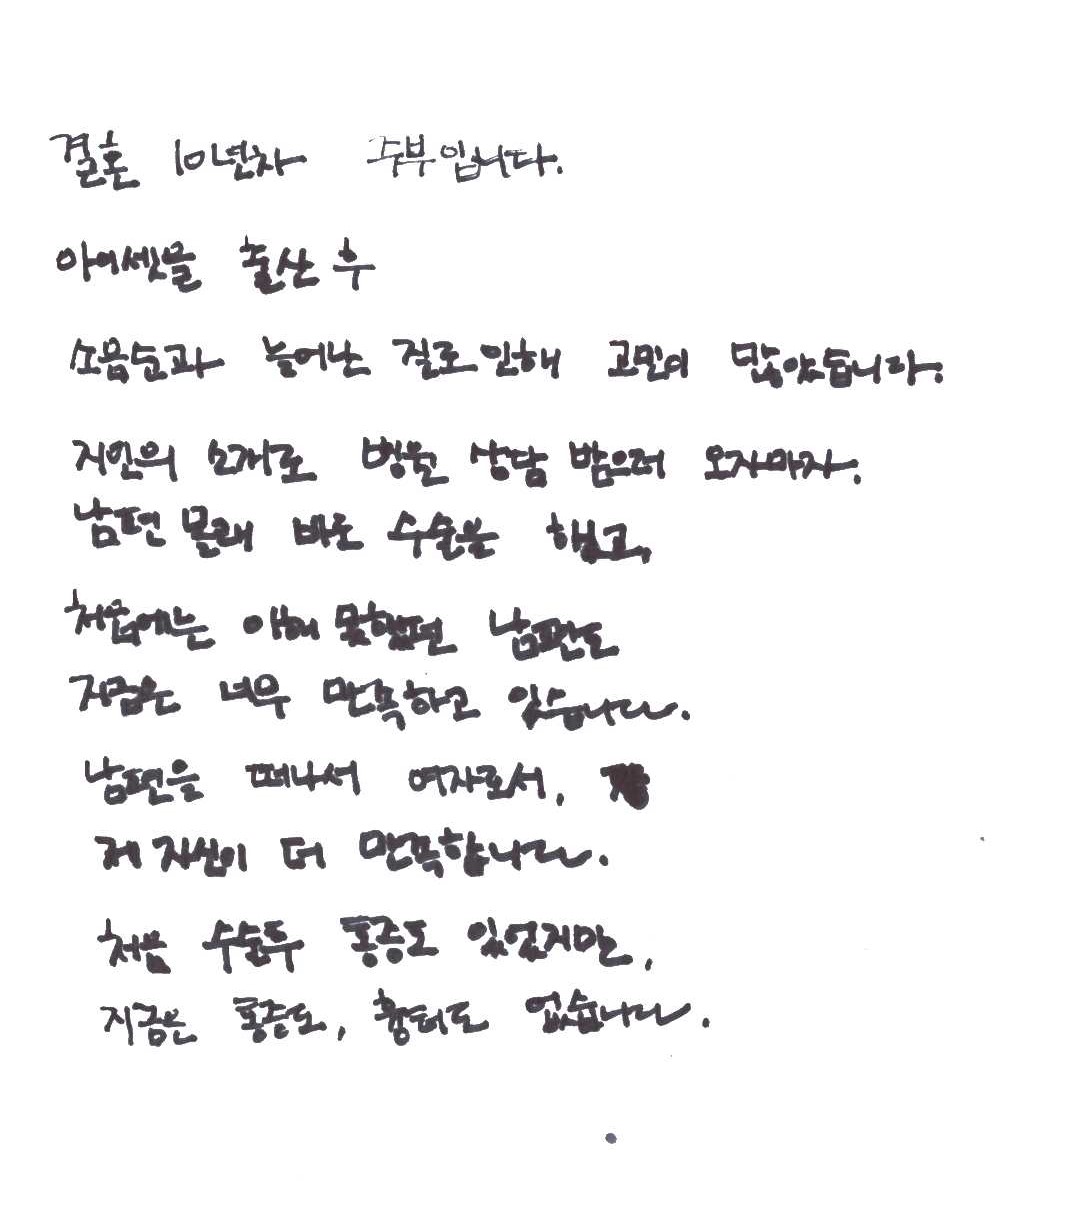 결혼 10년차 주부입니다.
아이셋을 출산 후
소음순과 늘어난 질로 인해 고민이 많았습니다.
지인의 소개로 병원 상담 받으러 오자마자.
남편 몰래 바로 수술을 했고,
처음에는 이해 못했던 남편도
지금은 너무 만족하고 있습니다.
남편을 떠나서 여자로서,
제 자신이 더 만족합니다.
처음 수술후 통증도 있었지만,
지금은 통증도, 흉터도 없습니다.